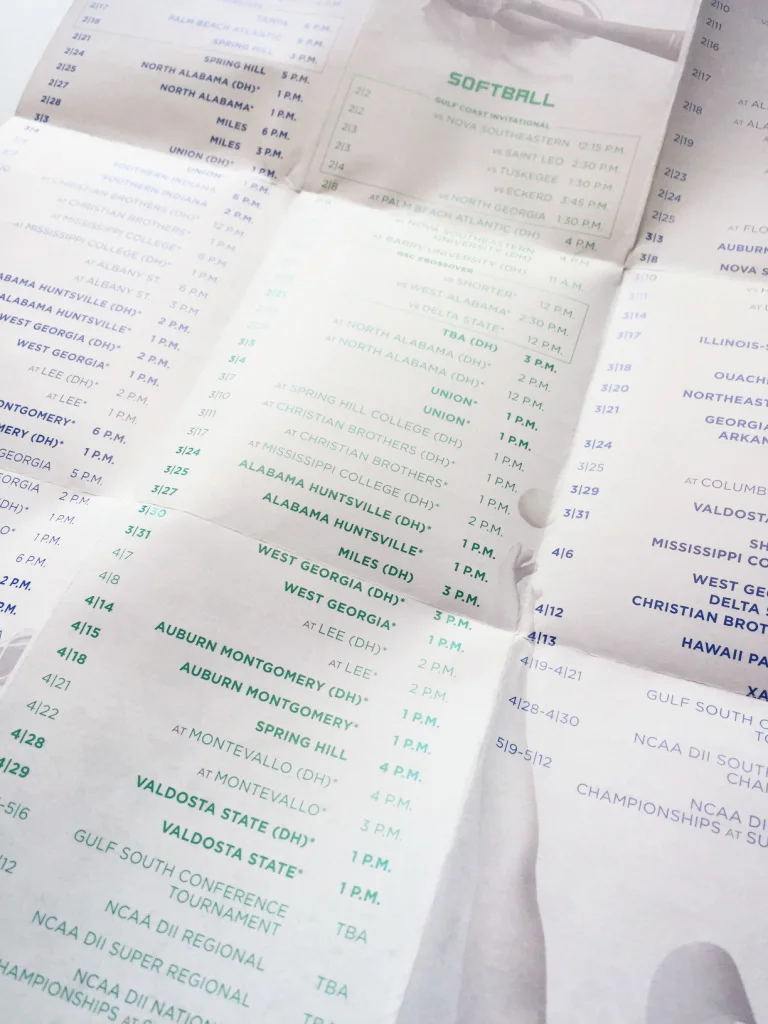 2|17
TAMPA 6 P.M.
2|18
PALM BEACH ATLANTIC 5 P.M.
2|21
SPRING HILL 3 P.M.
2|24
SPRING HILL 5 P.M.
2|25
NORTH ALABAMA (DH)* 1 P.M.
2|27
NORTH ALABAMA* 1 P.M.
2|28
MILES 6 P.M.
3|3
MILES 3 P.M.
3|4
UNION (DH)* 1 P.M.
UNION* 1 P.M.
SOUTHERN INDIANA 6 P.M.
SOUTHERN INDIANA 2 P.M.
AT CHRISTIAN BROTHERS (DH)* 12 P.M.
AT CHRISTIAN BROTHERS* 1 P.M.
AT MISSISSIPPI COLLEGE* 6 P.M.
AT MISSISSIPPI COLLEGE (DH)* 1 P.M.
AT ALBANY ST. 6 P.M.
AT ALBANY ST. 3 P.M.
ABAMA HUNTSVILLE (DH)* 2 P.M.
ALABAMA HUNTSVILLE* 1 P.M.
WEST GEORGIA (DH)* 2 P.M.
WEST GEORGIA* 1 P.M.
AT LEE (DH)* 2 P.M.
AT LEE* 1 P.M.
ONTGOMERY* 6 P.M.
MERY (DH)* 1 P.M.
GEORGIA 5 P.M.
EORGIA 2 P.M.
(DH)* 1 P.M.
O* 1 P.M.
6 P.M.
2 P.M.
P.M.
SOFTBALL
GULF COAST INVITATIONAL
2|2 vs NOVA SOUTHEASTERN 12:15 P.M.
2|2 vs SAINT LEO 2:30 P.M.
2|3 vs TUSKEGEE 1:30 P.M.
2|3 vs ECKERD 3:45 P.M.
2|4 vs NORTH GEORGIA 1:30 P.M.
2|8 AT PALM BEACH ATLANTIC (DH) 4 P.M.
AT NOVA SOUTHEASTERN
UNIVERSITY (DH) 4 P.M.
AT BARRY UNIVERSITY (DH) 11 A.M.
GSC CROSSOVER
vs SHORTER* 12 P.M.
vs WEST ALABAMA* 2:30 P.M.
vs DELTA STATE* 12 P.M.
TBA (DH) 3 P.M.
AT NORTH ALABAMA (DH)* 2 P.M.
AT NORTH ALABAMA (DH)* 12 P.M.
3|3 UNION* 1 P.M.
3|4 UNION* 1 P.M.
3|7 AT SPRING HILL COLLEGE (DH) 1 P.M.
3|10 AT CHRISTIAN BROTHERS (DH)* 1 P.M.
3|11 AT CHRISTIAN BROTHERS* 1 P.M.
3|17 AT MISSISSIPPI COLLEGE (DH)* 2 P.M.
3|24 ALABAMA HUNTSVILLE (DH)* 1 P.M.
3|25 ALABAMA HUNTSVILLE* 1 P.M.
3|27 MILES (DH) 3 P.M.
3|30 WEST GEORGIA (DH)* 3 P.M.
3|31 WEST GEORGIA* 1 P.M.
4|7 AT LEE (DH)* 2 P.M.
4|8 AT LEE* 2 P.M.
4|14 AUBURN MONTGOMERY (DH)* 1 P.M.
4|15 AUBURN MONTGOMERY* 1 P.M.
4|18 SPRING HILL 4 P.M.
4|21 AT MONTEVALLO (DH)* 4 P.M.
4|22 AT MONTEVALLO* 3 P.M.
4|28 VALDOSTA STATE (DH)* 1 P.M.
4|29 VALDOSTA STATE* 1 P.M.
-5|6 GULF SOUTH CONFERENCE
TOURNAMENT TBA
|12 NCAA DII REGIONAL TBA
NCAA DII SUPER REGIONAL
NCAA DII NATION
HAMPIONSHIPS AT
2|10
2|11
2|16
2|17
2|18 AT AL
AT ALA
2|19
2|23
2|24
2|25 AT FLO
3|3 AUBURN
3|8 NOVA S
3|10
3|11
3|14
3|17 ILLINOIS-S
3|18 OUACHI
3|20 NORTHEAST
3|21 GEORGIA
ARKAN
3|24
3|25 AT COLUMB
3|29 VALDOSTA
3|31 SH
MISSISSIPPI CO
4|6 WEST GEO
DELTA S
CHRISTIAN BROT
4|12 HAWAII PA
4|13 XA
4|19-4|21 GULF SOUTH C
TO
4|28-4|30 NCAA DII SOUT
CHAM
5|9-5|12 NCAA DI
CHAMPIONSHIPS AT SU